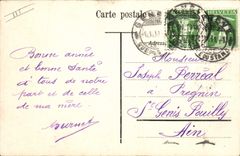 Carte postale
HELVETIA
Bonne année
et bonne Santé
à tous de notre
part et de celle
de ma mère
Burnet
Monsieur
Joseph Perréal
à Pregnin
St. Genis Pouilly
Ain